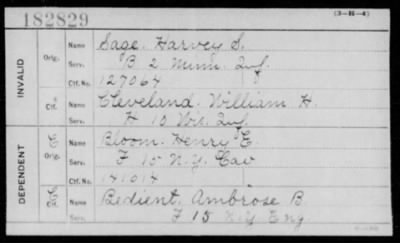 182829
(3-H-4)
INVALID
Orig.
Name Sage. Harvey S.
Serv. B 2 Minn. Inf.
Ctf. No. 127064
Ctf.
Name Cleveland. William H.
Serv. F 10 Wis. Inf.
DEPENDENT
C
Orig.
Name Bloom. Henry E.
Serv. F 15 N.Y. Cav
Ctf. No. 141014
C
Ctf.
Name Bedient. Ambrose B
Serv. F 15 N.Y Eng.